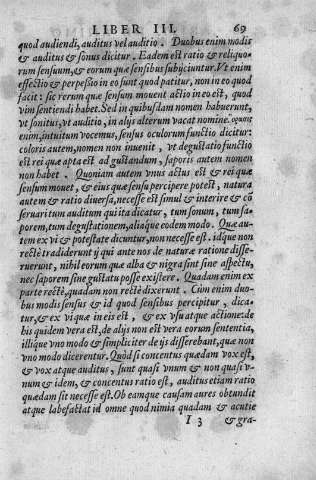 LIBER III. 69
quod audiendi, auditus vel auditio. Duobus enim modis
& auditus & sonus dicitur. Eadem est ratio & reliquo-
rum sensuum, & eorum quæ sensibus subijciuntur. Vt enim
effectio & perpessio in eo sunt quod patitur, non in eo quod
facit: sic rerum quæ sensum mouent actio in eo est, quod
vim sentiendi habet. Sed in quibusdam nomen habuerunt,
vt sonitus, vt auditio, in alys alterum vacat nomine. ὅρασις
enim, intuitum vocemus, sensus oculorum functio dicitur:
coloris autem, nomen non inuenit, vt degustatio functio
est rei quæ apta est ad gustandum, saporis autem nomen
non habet. Quoniam autem vnus actus est & rei quæ
sensum mouet, & eius quæ sensu percipere potest, natura
autem & ratio diuersa, necesse est simul & interire & cō
seruari tum auditum qui ita dicatur, tum sonum, tum sa-
porem, tum degustationem, aliaque eodem modo. Quæ au-
tem ex vi & potestate dicuntur, non necesse est. idque non
rectè tradiderunt ij qui ante nos de naturæ ratione disse-
ruerunt, nihil eorum quæ alba & nigra sint sine aspectu,
nec saporem sine gustatu posse existere. Quadam enim ex
parte rectè, quadam non rectè dixerunt. Cùm enim duo-
bus modis sensus & id quod sensibus percipitur, dica-
tur, & ex vi quæ in eis est, & ex vsu atque actione: de
his quidem vera est, de alys non est vera eorum sententia,
illique vno modo & simpliciter de ijs disserebant, quæ non
vno modo dicerentur. Quòd si concentus quædam vox est,
& vox atque auditus, sunt quasi vnum & non quasi v-
num & idem, & concentus ratio est, auditus etiam ratio
quædam sit necesse est. Ob eamque causam aures obtundit
atque labefactat id omne quod nimia quadam & acutie
I 3 & gra-